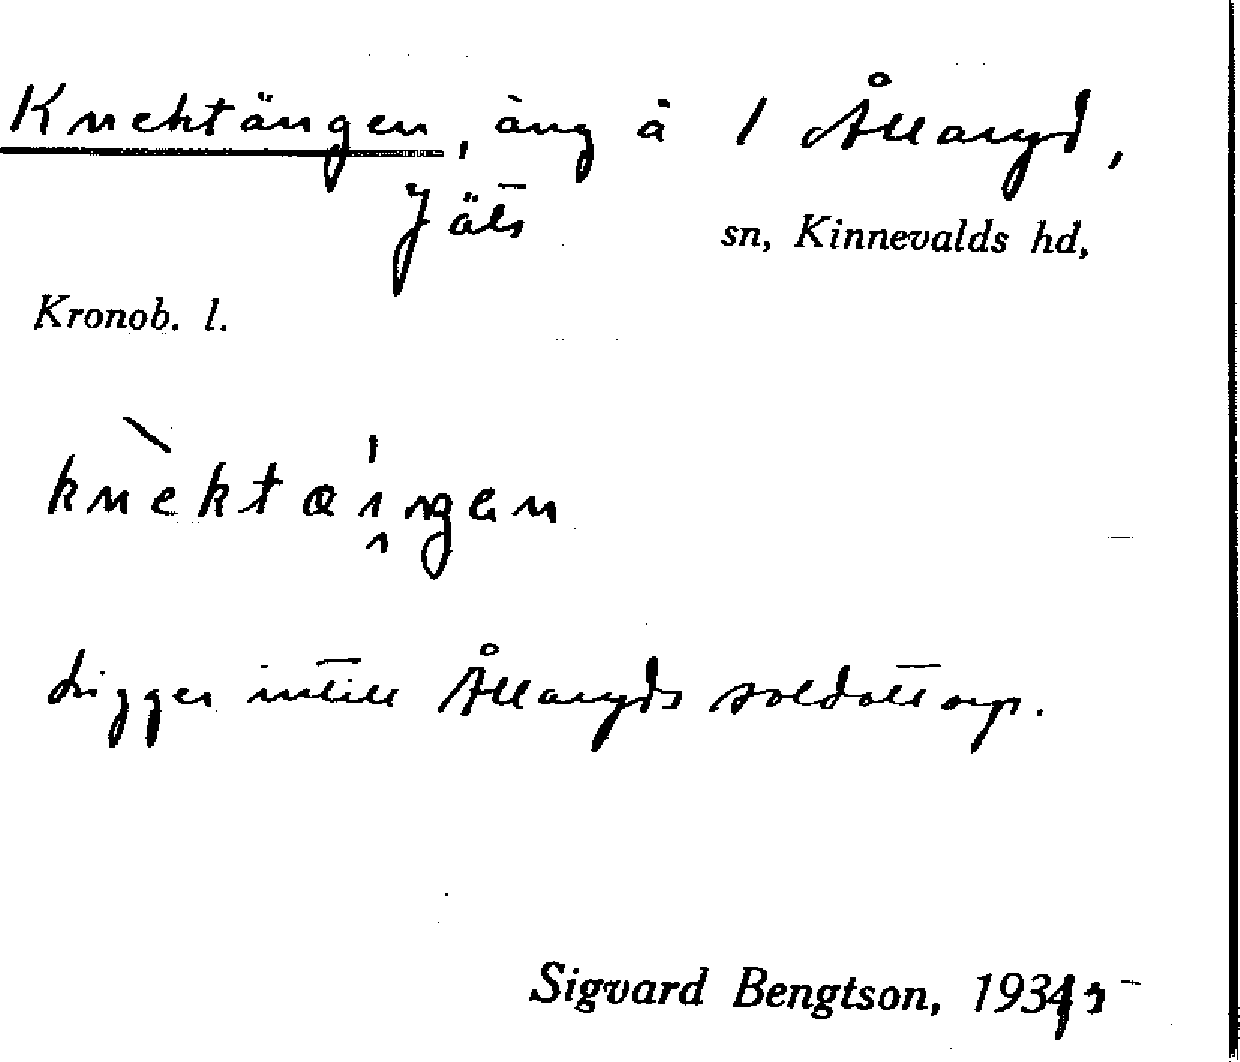 Knektängen, äng å 1 Ållaryd,
Jäts sn, Kinnevalds hd,
Kronob. l.
Ligger intill Ållaryds soldattorp.
Sigvard Bengtson, 1935